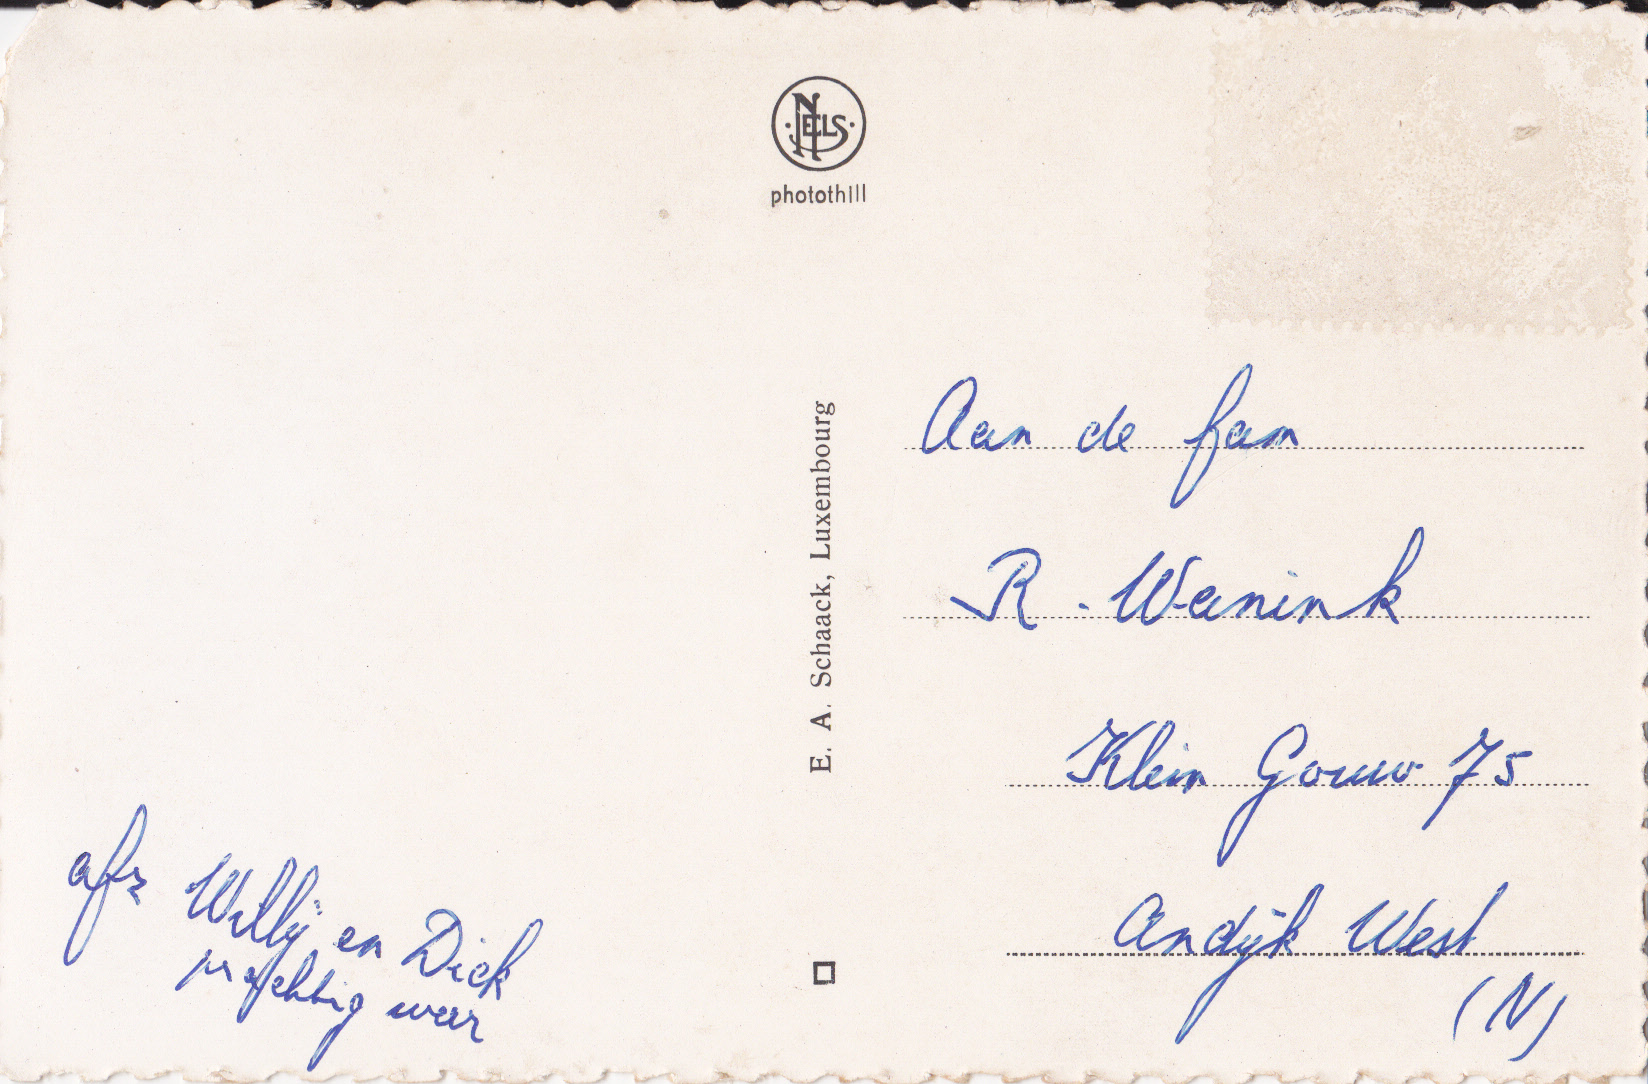 NELS
photothill
E. A. Schaack, Luxembourg
Aan de fam
R. Weinink
Klein Gouw 75
Andijk West
(N)
afz Willy en Dick
prachtig weer